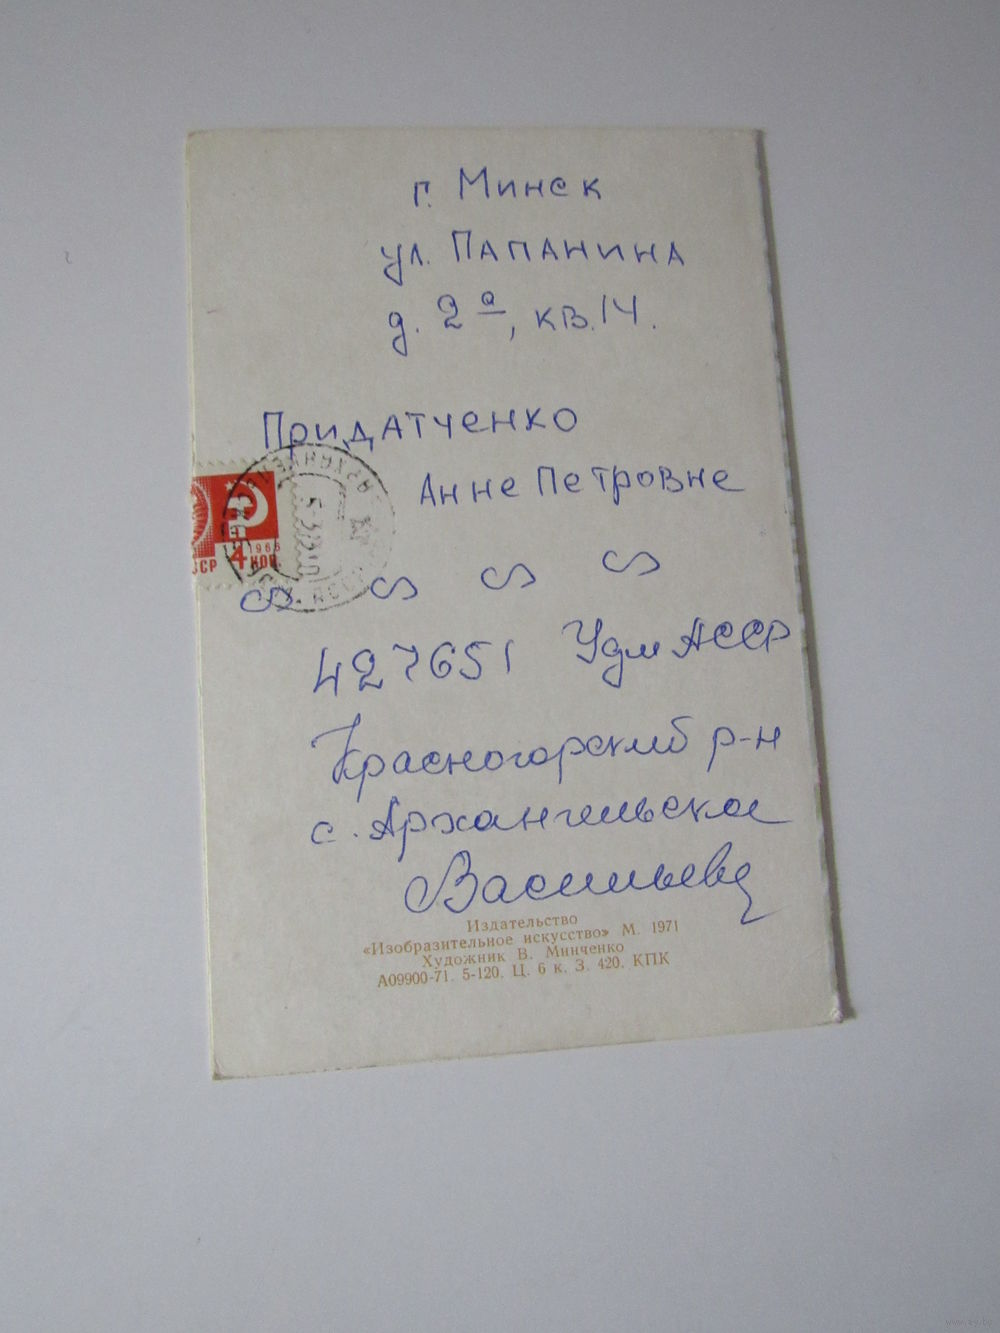 г. Минск
ул. ПАПАНИНА
д. 2а, кв. 14.
ПРИДАТЧЕНКО
Анне Петровне
1966
4 КОП.
СССР
427651 Удм АССР
Красногорский р-н
с. Архангельское
Васильева
Издательство
«Изобразительное искусство» М. 1971
Художник В. Минченко
А09900-71. 5-120. Ц. 6 к. З. 420. КПК